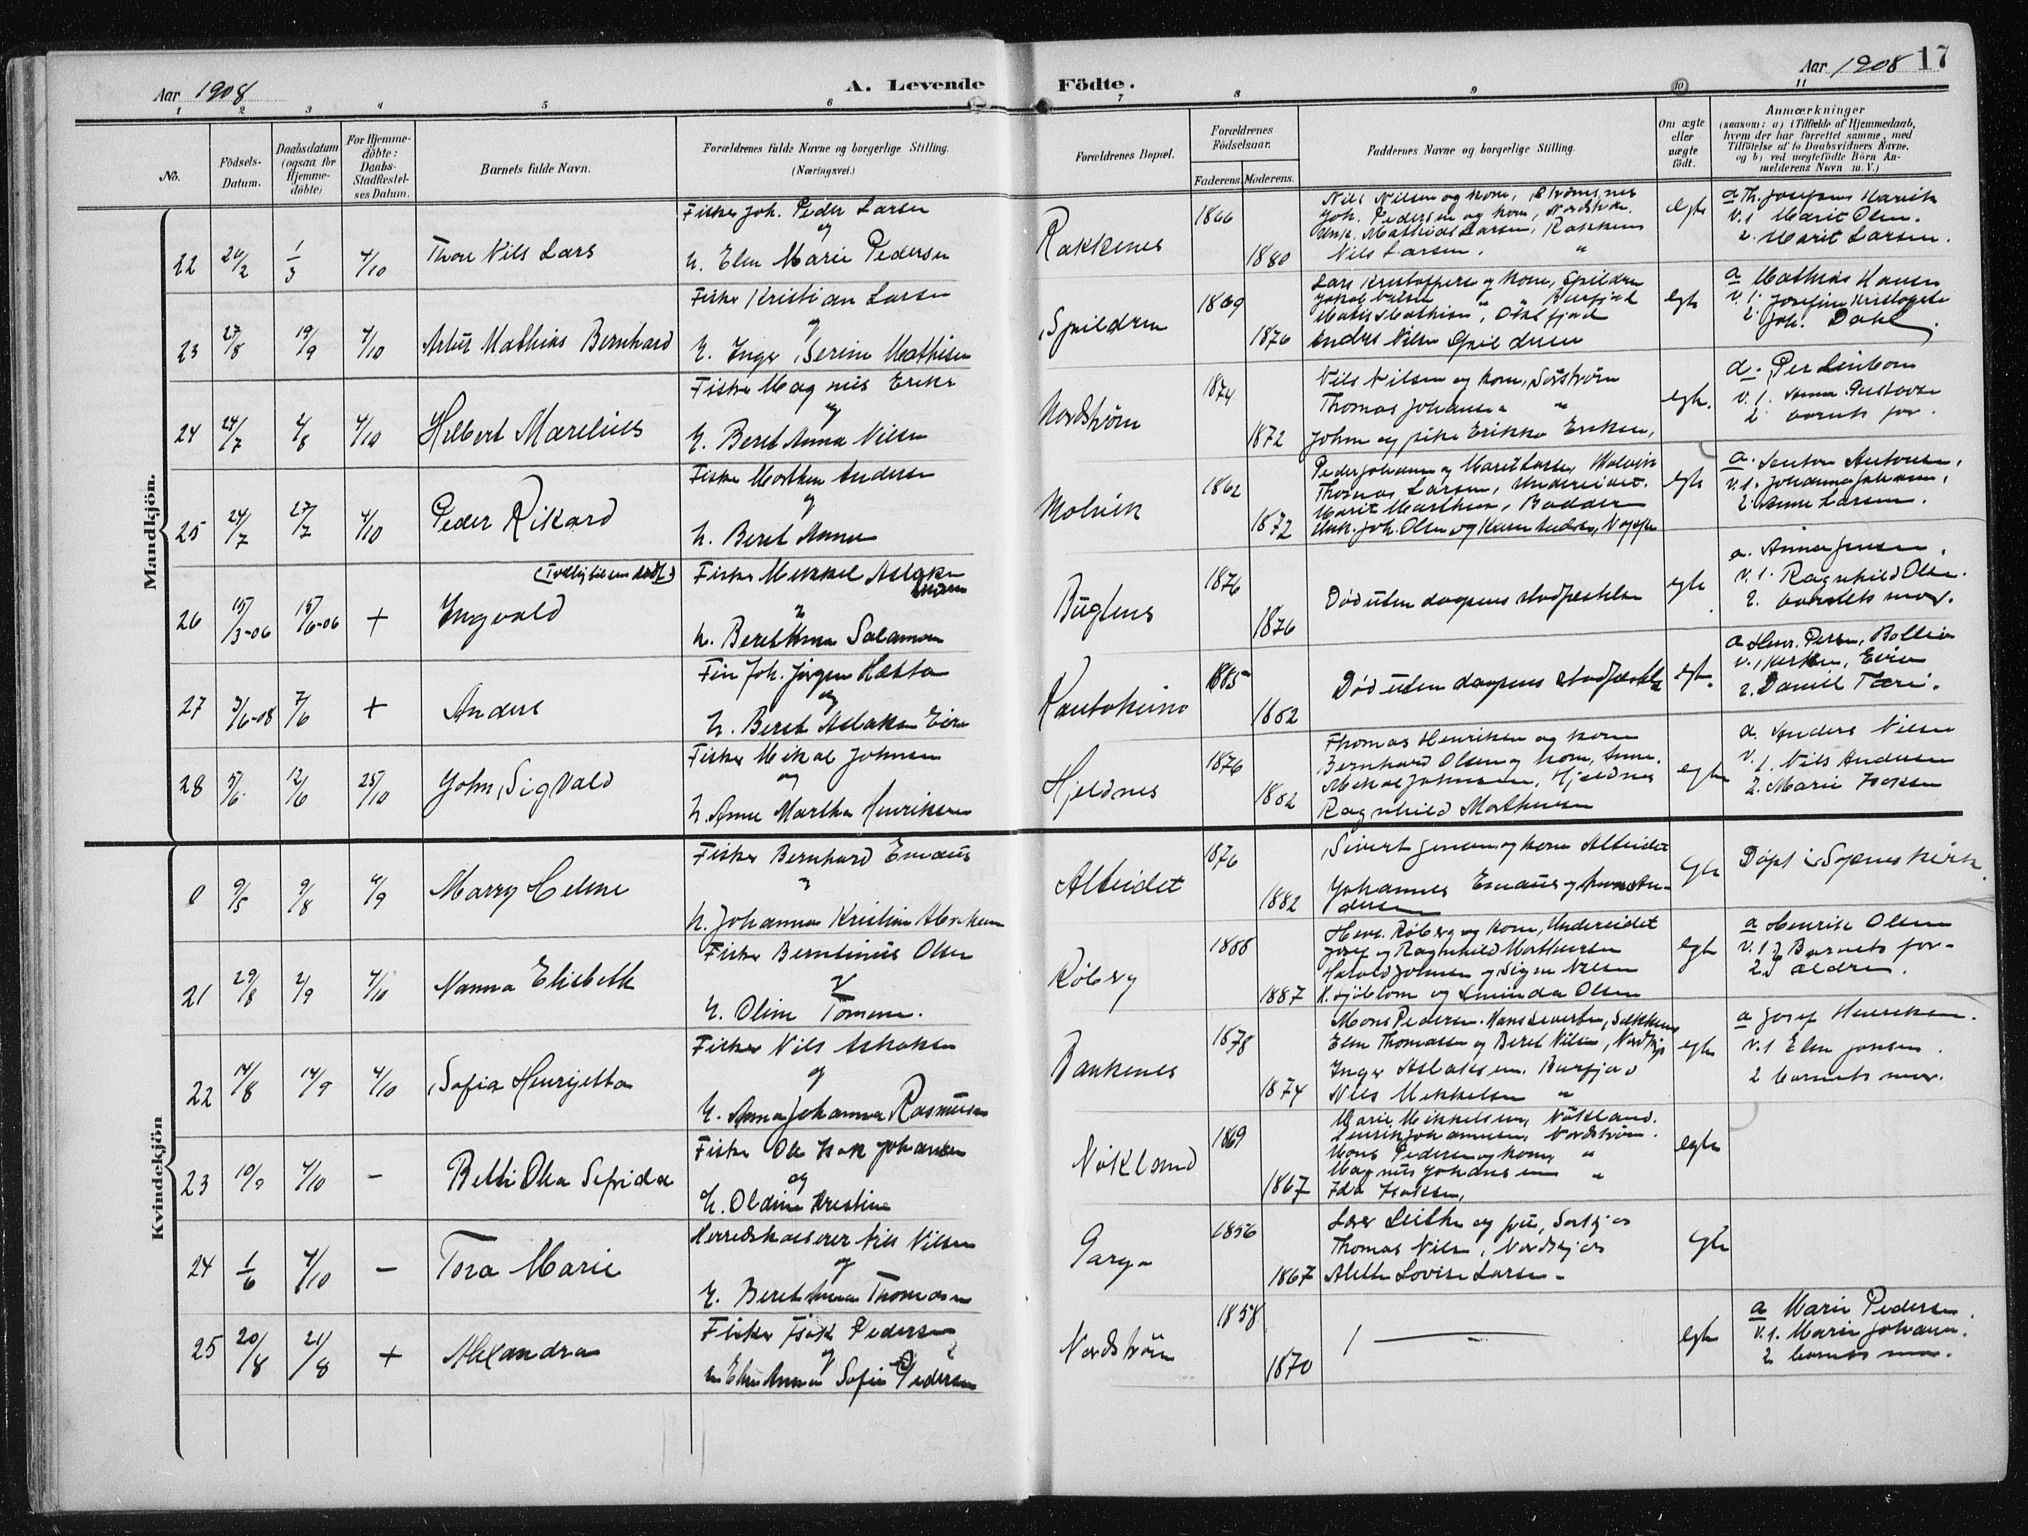 Aar 1908
A. Levende Födte.
Aar 1908
17
1 2 3 4 5 6 7 8 9 10 11
No.
Födsels-
Datum.
Daabsdatum
(ogsaa for
Hjemme-
döbte)
For Hjemme-
döbte:
Daabs
Stadfæstel-
ses Datum.
Barnets fulde Navn.
Forældrenes fulde Navne og borgerlige Stilling.
(Næringsvei.)
Forældrenes Bopæl.
Forældrenes
Födselsaar.
Faderens. Moderens.
Faddernes Navne og borgerlige Stilling.
Om ægte
eller
uægte
födt.
Anmærkninger
(saasom: a) i Tilfælde af Hjemmedaab,
hvem der har forrettet samme, med
Tilföielse af to Daabsvidners Navne,
og b) ved uægtefödte Börn An-
melderens Navn m. V.)
Mandkjön.
22 20/2 1/3 4/10 Thore Nils Lars
Fisker Joh. Peder Larsen
og
h. Elen Marie Pedersen
Rakkenes 1866 1880
Nils Nilsen og kone, Strømsnes
Joh. Pedersen og kone, Nordstrøm.
Mathias Larsen, Rakkenes
Nils Larsen. "
egte
a Th. Josefsens Marith
v. 1 Marit Olsen.
2. Marit Larsen.
23 27/8 19/9 4/10 Artur Mathias Bernhard
Fisker Kristian Larsen
og
h. Inger Serine Mathisen
Spildren 1869 1876
Lars Kristoffersen og kone, Spildren
Jakob Nilsen " " Burfjord
Mathis Mathisen, Oksfjord
Anders Nilsen Spildren
egte
a Mathias Hansen
v. 1. Josefine Kristoffersen
2 Joh. Dahl.
24 24/7 2/8 4/10 Helbert Marelius
Fisker Magnus Eriksen
og
h. Beret Anna Nilsen
Nordstrøm 1874 1872
Nils Nilsen og kone, Sørstrøm
Thomas Johansen "
Johan og pike Erikka Eriksen,
egte.
a. Per Leinbom
v. 1. Anna Gustavsen
2 barnets far.
25 24/7 27/7 4/10 Peder Rikard
Fisker Morthen Andersen
og
h. Beret Anna
Molvik 1862 1872
Peder Johansen og Marit Larsen, Molvik
Thomas Larsen, Undereidet.
Marit Marthisen, Badderen
Joh. Olsen og Karen Andersen,
egte
a. Anton Antonsen,
v. 1. Johanna Johansen,
2. Anne Larsen.
26 15/3-06 15/6-06 +
Ingvald
Fisker Mikkel Aslaksen
og
h. Beret Anna Salamonsen
Buglenes 1876 1876
Død uten daapens stadfæstelse
egte
a. Anna Jensen.
v. 1. Ragnhild Olsen.
2. barnets mor.
27 3/6-08 7/6 + Anders
Fin Joh. Jørgen Hætta
og
h. Beret Aslaksen Eira
Kautokeino 1885 1882
Død uten daapens stadfæstelse
egte.
2. Daniel Tæri.
28 5/6 12/6 25/10 John Sigvald
Fisker Mikal Johnsen
og
h. Anne Martha Henriksen
Hjeldnes 1876 1882
Thomas Henriksen og kone
Bernhard Olsen og kone, Anne.
Mikal Johnsen, Hjeldnes
Ragnhild Mathisen
egte
a. Anders Nilsen
v. 1. Nils Andersen
2. Marie Isaksen
Kvindekjön
0 9/5 9/8 4/9 Marry Celine
Fisker Bernhard Emaus
og
h. Johanna Kristine Abrahamsen
Alteidet 1876 1882
Sivert Jensen og kone Alteidet
Johannes Emaus og
egte
Døpt i Sopnes kirk.
21 29/8 2/9 4/10 Nanna Elisbeth
Fisker Berntinus Olsen
og
h. Oline Tomine.
Røberg 1888 1887
Henr. Røberg og kone, Undereidet
Josef og Ragnhild Mathisen
Harald Johnsen og Signe Nilsen
K. Sjøblom og Aminda Olsen
egte
a Henrik Olsen
v. 1 } Barnets for-
2. } ældre.
22 14/8 14/9 4/10 Sofia Henrijetta
Fisker Nils Aslaksen
og
h. Anna Johanna Rasmusen
Bankenes 1878 1874
Mons Pedersen.
Elen Thomassen og Beret Nilsen,
Inger Aslaksen. Burfjord
Nils Mikkelsen "
egte
a Josef Henriksen.
v. 1 Elen Jonsen.
2 barnets mor.
23 10/9 4/10 - Betti Olea Sefrida
Fisker Ole Isak Johansen
og
h. Oldine Kristine
Nøkland 1869 1867
Marie Mikkelsen, Nøkland.
Henrik Johannesen, Nordstrøm.
Mons Pedersen og kone, "
Magnus Johansen "
Ida Isaksen,
egte
24 1/6 4/10 - Tora Marie
Herredskasserer Nils Nilsen
og
h. Beret Anna Thomassen
Garga 1856 1867
Lærer Leithe og frue, Sørkjos
Thomas Nilsen, Nordkjos
Alette Lovise Larsen -
egte
25 20/8 21/8 + Alexandra
Fisker Isak Pedersen
og
h. Elen Anna Sofie Pedersen
Nordstrøm 1858 1870
egte
a Marie Pedersen.
v. 1. Marie Johansen.
2 barnets mor.